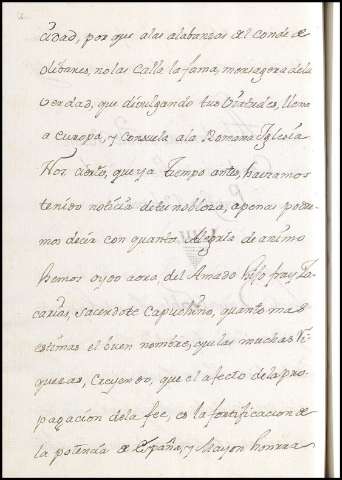 cidad, por que alas alabanzas del Conde de
Olibares, nolas Calla la fama, mensagera dela
verdad, que divulgando tus
a europa, y Consuela ala Romana Iglesia
Por cierto, que ya tiempo antes, haviamos
tenido noticia detu nobleza, apenas pode
mos decir con quanta Alegria de animo
hemos oydo aora, del Amado hijo fray Za
carias, sacerdote Capuchino, quanto mas
estimas el buen nombre, qu las muchas ri
quezas, Creyendo, que el afecto dela pro
pagacion dela fee, es la fortificacion de
la potencia de España, y Mayor honrra